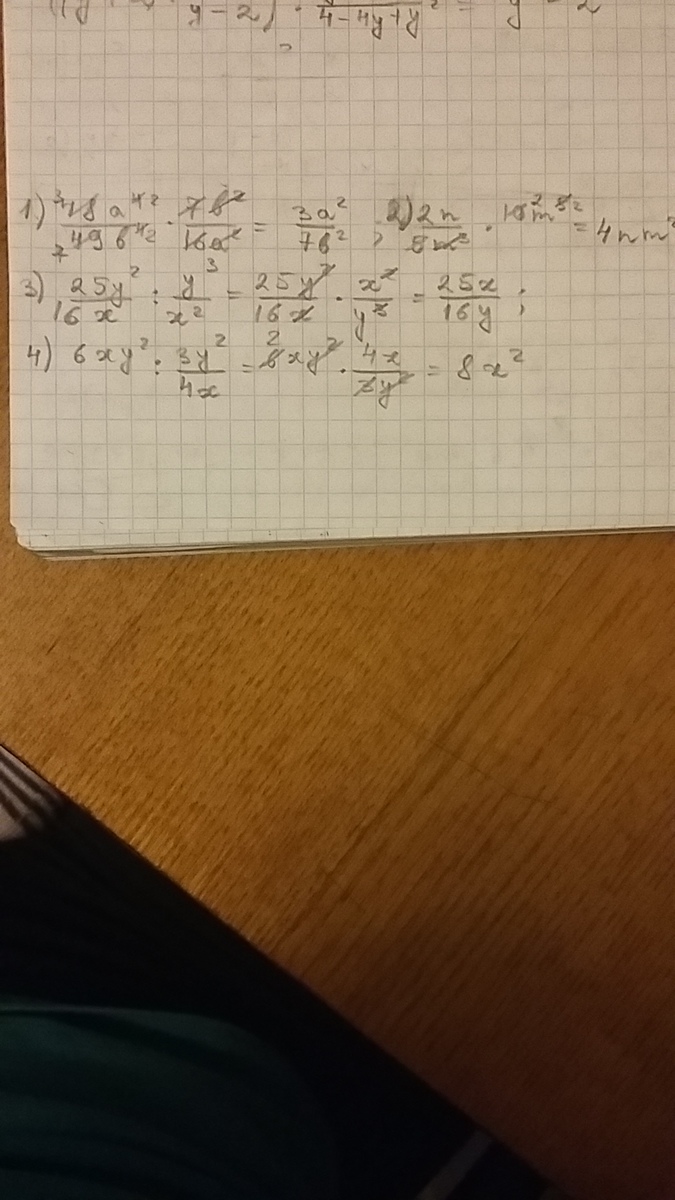 y - 2) · / 4 - 4y + y² = y - 2
1) 48a⁴/49b⁴ · 7b²/16a² = 3a²/7b² ; 2) 2n/5m³ · 10m⁵ = 4nm²
3) 25y²/16x : y³/x² = 25y²/16x · x²/y³ = 25x/16y ;
4) 6xy² : 3y²/4x = 6xy² · 4x/3y² = 8x²